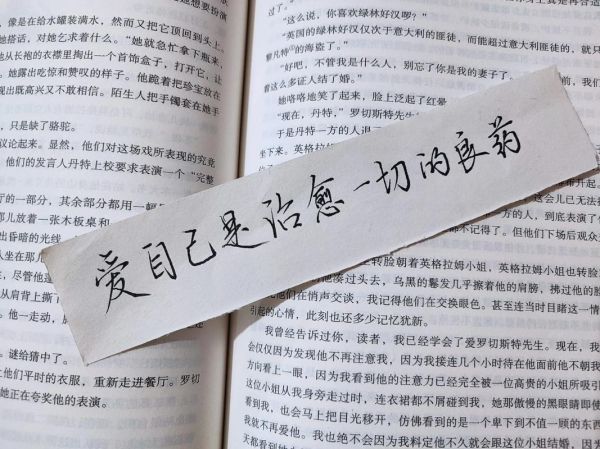 ，像是在给水罐装满水，然而又把它顶回到头上。
她搭话，对她乞求着什么。“她就急忙拿下瓶来，
他从长袍的衣襟里掏出一个首饰盒子，打开它，让
，她露出吃惊和赞叹的样子。他跪着把珍宝放在
现出既高兴又不敢相信。陌生人把手镯套在她手
，只是缺了骆驼。
议论起来。显然，他们对这场戏所表现的究竟
。他们的发言人丹特上校要求表演一个“完整
厅的一部分，其余部分都用一
那儿放着一张木板桌和
出昏暗的光线
人坐在那儿
，尽管他
从肩背上撕
。他一走动，
。谜给猜中了。
上他们平时的衣服，重新走进餐厅。罗切
她正在夸奖他的表演。
“这么说，你喜欢绿林好汉啰？”
“英国的绿林好汉仅次于意大利的匪徒，而能超过意大利匪徒的，就只
黎凡特的海盗了。”
“好吧，不管我是什么人，别忘了你是我的妻子了。
着这么多证人结了婚。”
她咯咯地笑了起来，脸上泛起了红晕
“现在，丹特，”罗切斯特先生
于是丹特一方的人退了
坐下来。英格拉姆
爱自己是治愈一切的良药
这会儿已无法
一方的人，到底表演了
都不记得了。但他们下场后观众
转脸看着英格拉姆小姐，英格拉姆小姐也转脸
他凑过头去，乌黑的鬈发几乎擦着他的肩膀，拂过他的脸
他们在悄声交谈，我记得他们在交换眼色。甚至连当时目睹这一情
引起的心情，此刻也还多少记忆犹新。
我曾经告诉过你，读者，我已经学会了爱罗切斯特先生。现在，我
会仅仅因为发现他不再注意我，因为我接连几个小时待在他面前他不朝我
方向看上一眼，因为我看到他的注意力已经完全被一位高贵的小姐所吸引
这位小姐从我身旁走过时，连衣裙都不屑碰到我，她那傲慢的黑眼睛即使
看到我，也会马上把目光移开，仿佛看到的是一个卑下到不值一顾的东西
我就不再爱他。我也绝不会因为我料定他不久就会跟这位小姐结婚，因